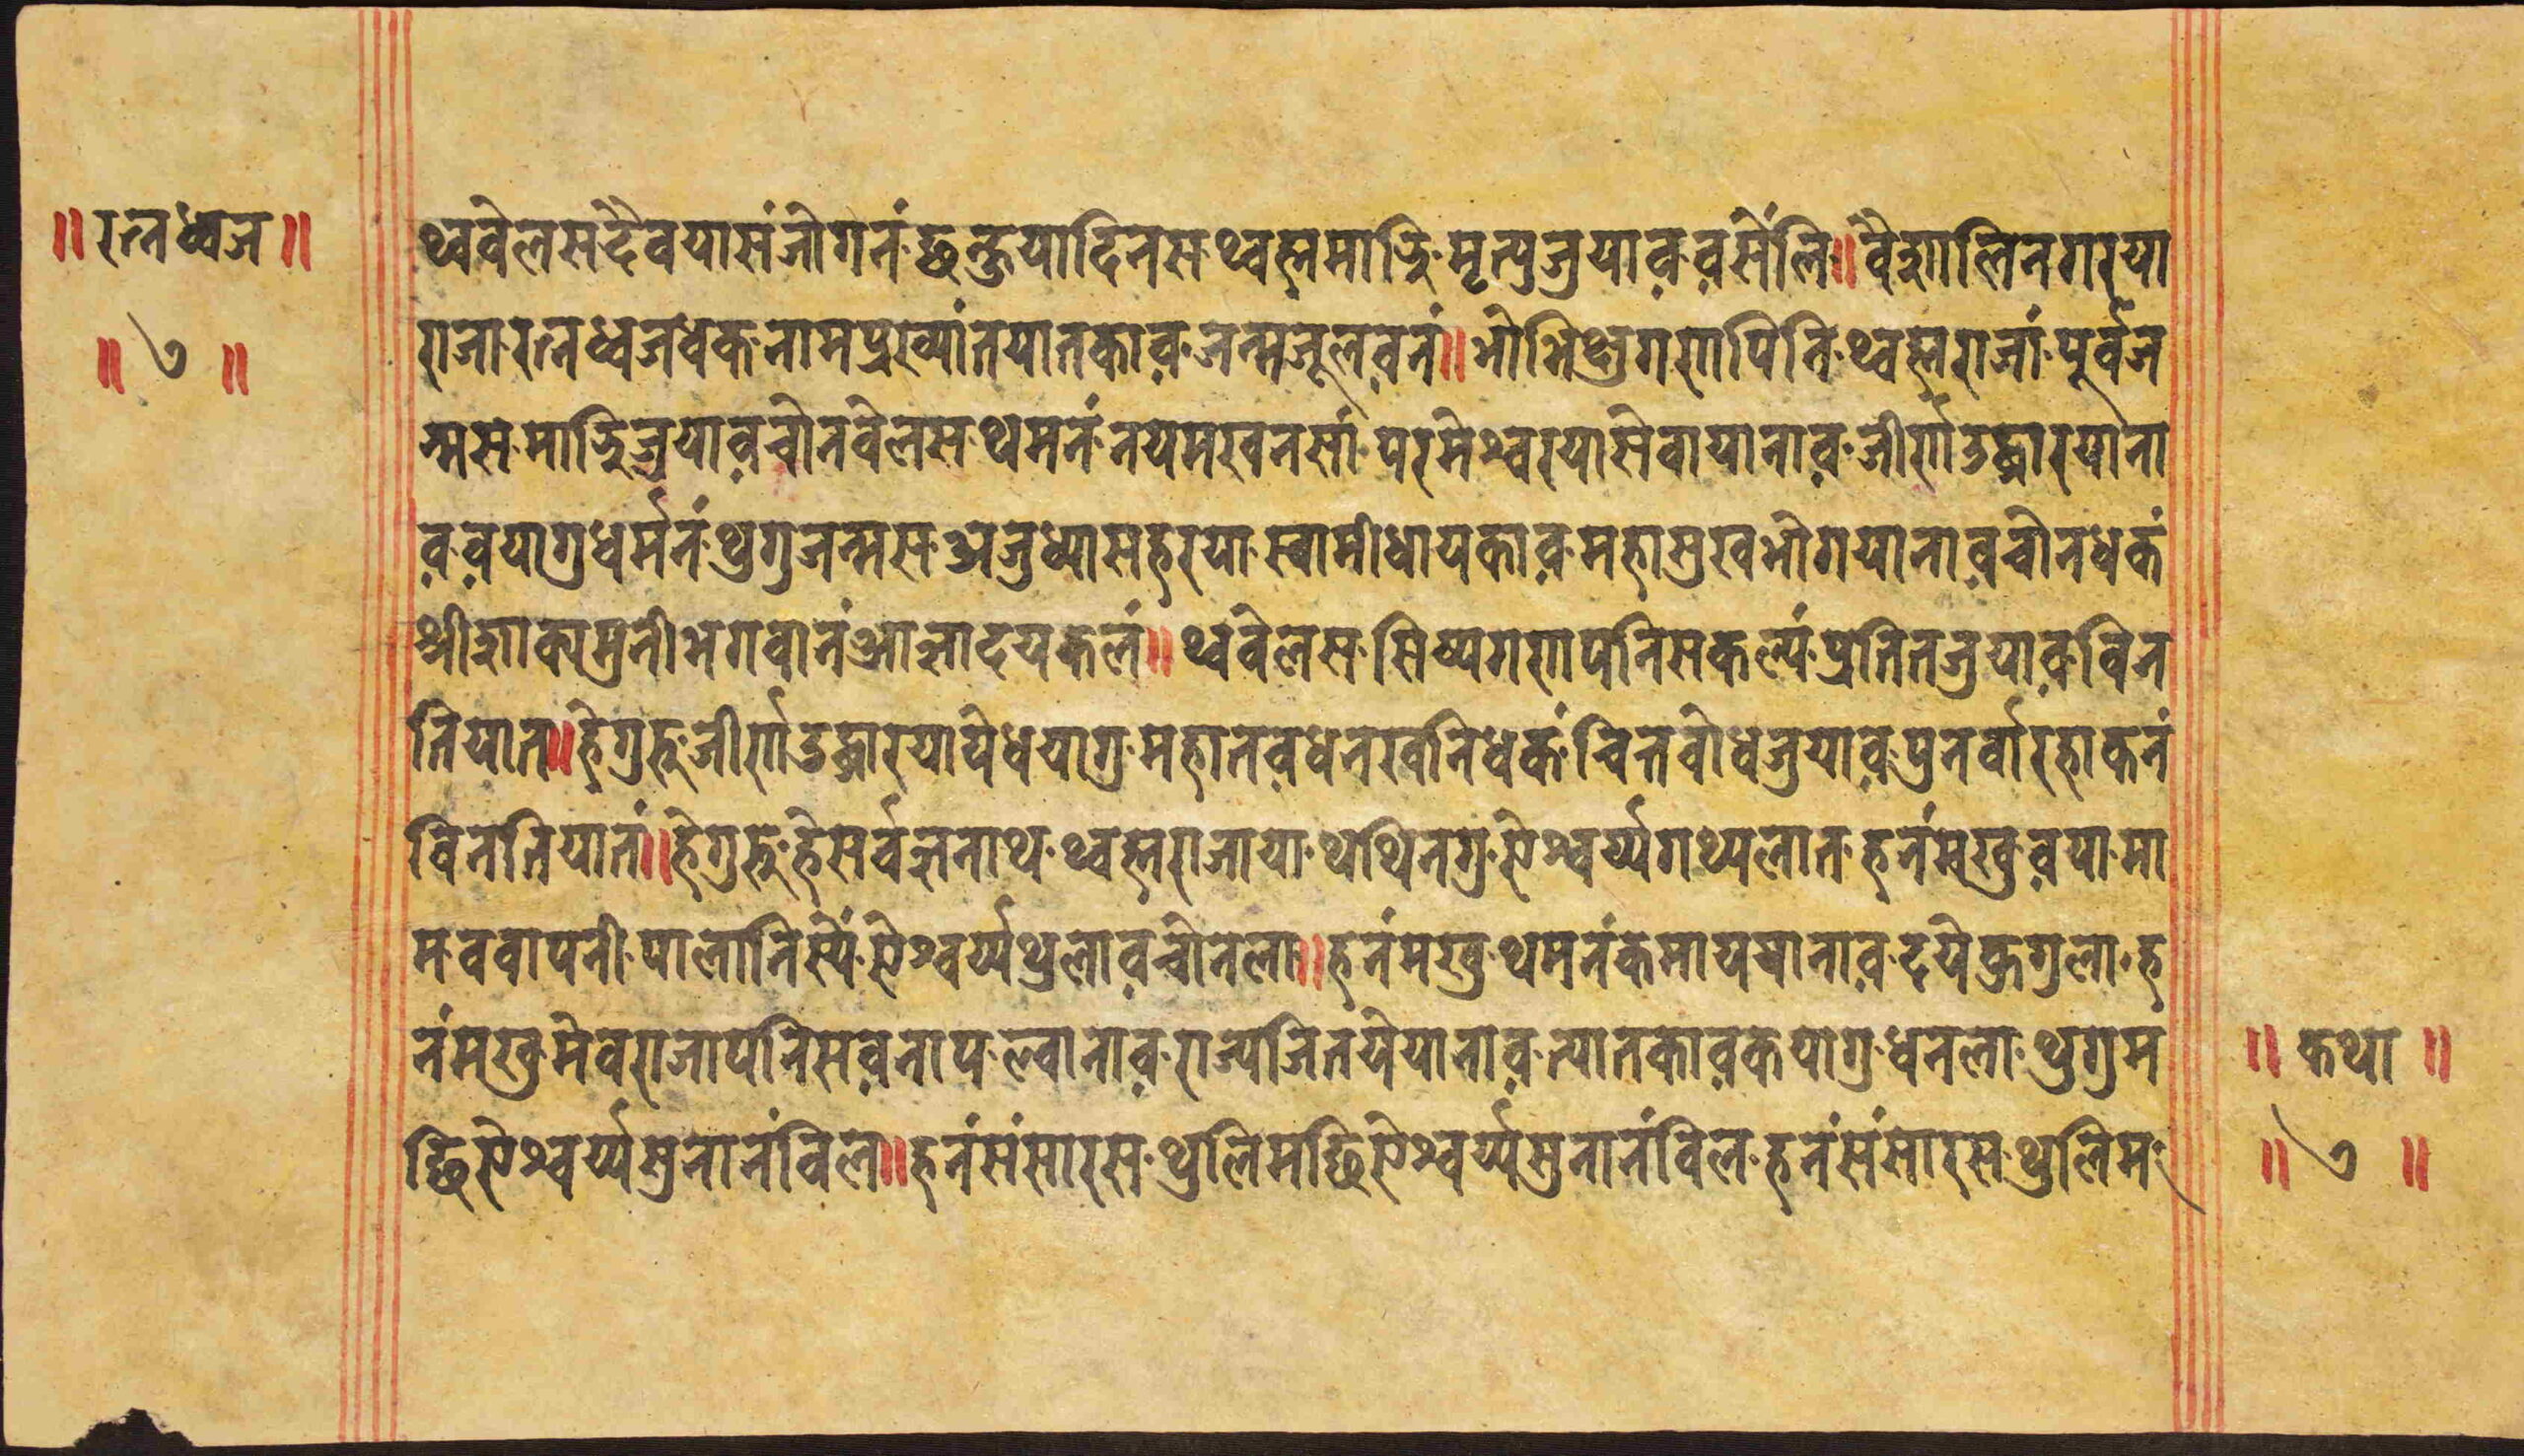 ॥ रत्नध्वज ॥
॥ ७ ॥
थ्ववेलस दैवयासंजोगनं छन्हुयादिनस थ्वह्ममाझि मृत्युजुयाव वसेंलि॥ वैशालिनगरया
राजा रत्नध्वजधक नामप्रख्यांतयातकाव जन्मजूलवनं॥ भोभिक्षुगणपिनि थ्वह्मराजां पूर्वज
न्मस माझिजुयाव चोनवेलस थमनं नयेमखनसां परमेश्वरयासेवायानाव जीर्णोउद्धारयाना
व वयागुधर्मनं थुगुजन्मस अजुध्यासहरया स्वामीधायकाव महासुखभोगयानाव चोनधकं
श्रीशाक्यमुनीभगवानं आज्ञादयकलं॥ थ्ववेलस सिष्यगणपनिसकल्यं प्रतितजुयाव विन
तियात॥ हेगुरु जीर्णोउद्धारयायेधयागु महानवधनखनिधकं चित्तबोधजुयाव पुनर्वारहाकनं
विनतियातं॥ हेगुरु हेसर्वज्ञनाथ थ्वह्मराजाया थथिनगु ऐश्वर्य्यगथ्यलात हनंमखु वया मा
म बवापनी पालानिस्यें ऐश्वर्य्यथुलाव चोनला॥ हनंमखु थमनंकमाययानाव दयेकुगुला ह
नंमखु मेवराजापनिसवनाप ल्वानाव राज्यजितयेयानाव त्यातकाव कयागु धनला थुगुम
छि ऐश्वर्य्यसुनानंविल॥ हनंसंसारस थुलिमछि ऐश्वर्य्यसुनानंविल हनंसंसारस थुलिम
॥ कथा ॥
॥ ७ ॥